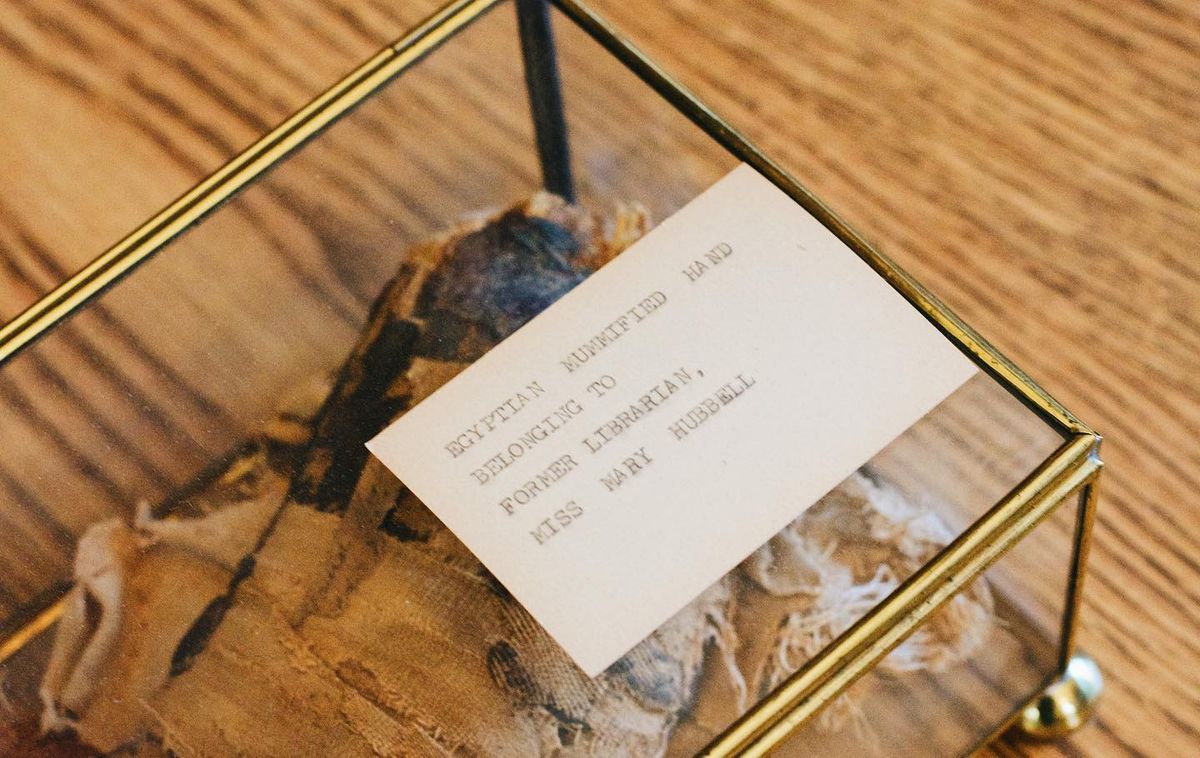 EGYPTIAN MUMMIFIED HAND
BELONGING TO
FORMER LIBRARIAN,
MISS MARY HUBBELL